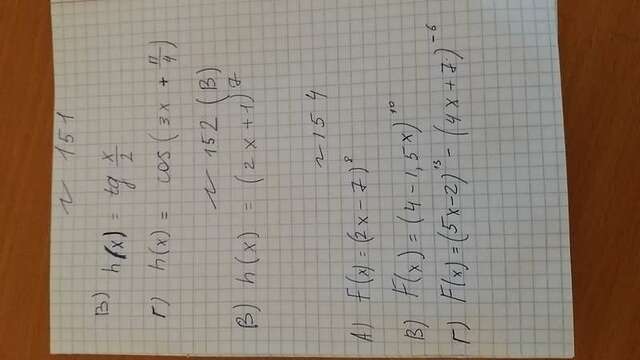 ~ 151
В) h(x) = tg x/2
Г) h(x) = cos(3x + π/4)
~ 152 (В)
В) h(x) = (2x+1)⁷
~ 154
А) F(x) = (2x-7)⁸
В) F(x) = (4-1,5x)¹⁰
Г) F(x) = (5x-2)¹³ - (4x+7)⁻⁶